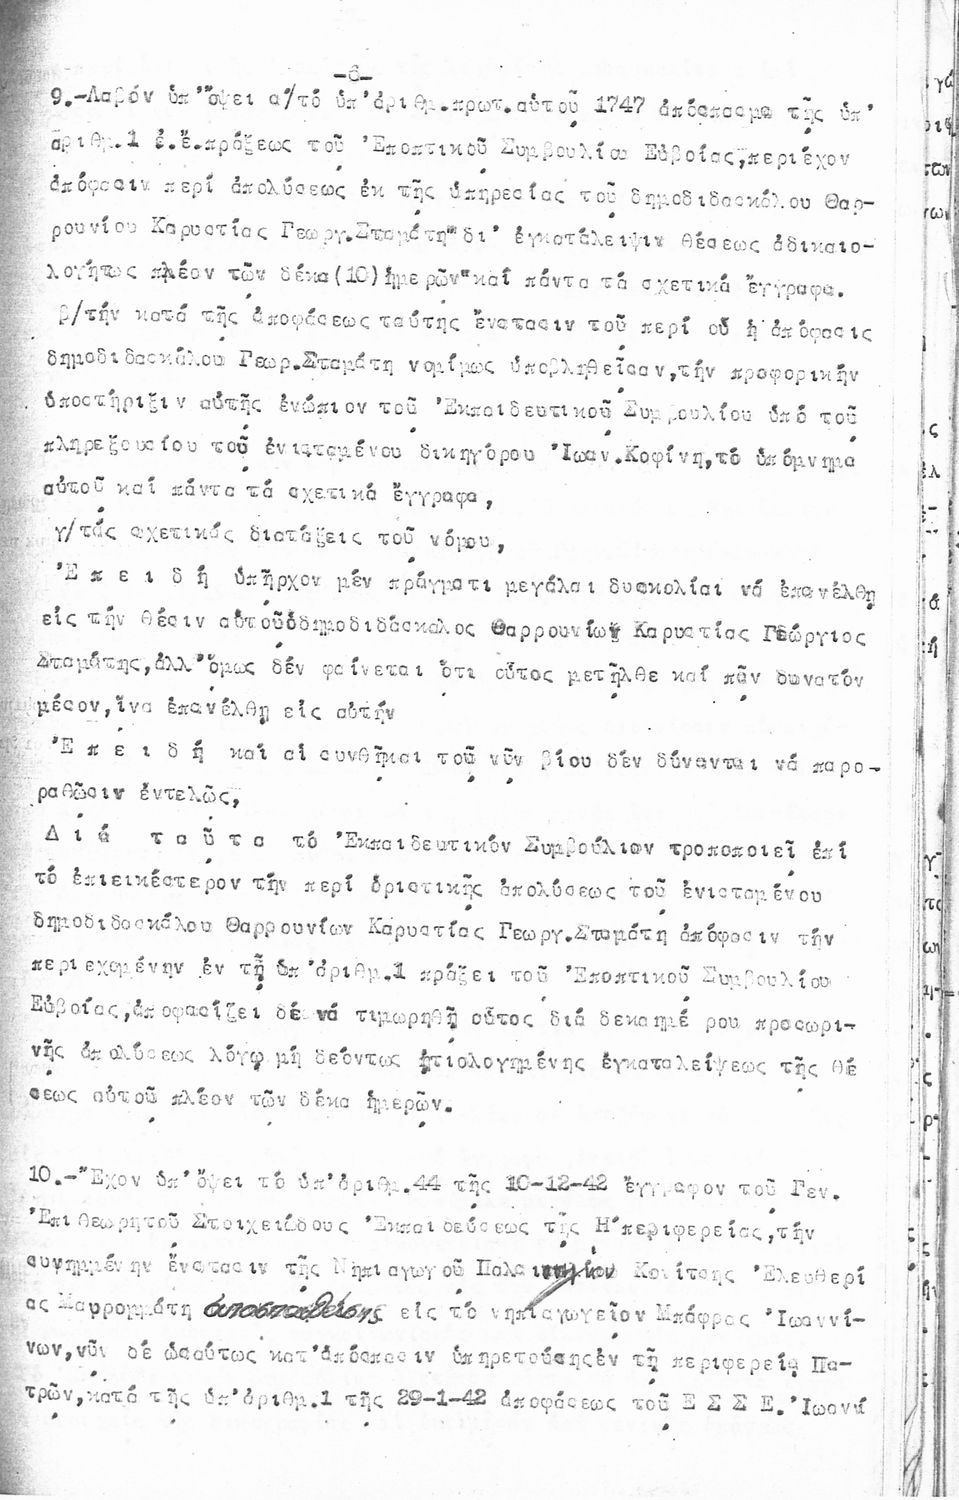 -6-
9.-Λαβόν ὑπ'ὄψει α/τό ὑπ'ἀριθμ.πρωτ.αὐτοῦ 1747 ἀπόσπασμα τῆς ὑπ'
ἀριθμ.1 ἐ.ἔ.πράξεως τοῦ 'Εποπτικοῦ Συμβουλίου Εὐβοίας,περιέχον
ἀπόφασιν περί ἀπολύσεως ἐκ τῆς ὑπηρεσίας τοῦ δημοδιδασκάλου Θαρ-
ρουνίου Καρυστίας Γεωργ.Σταμάτη"δι' ἐγκατάλειψιν θέσεως ἀδικαιο-
λογήτως πλέον τῶν δέκα(10)ἡμερῶν"καί πάντα τά σχετικά ἔγγραφα.
β/τήν κατά τῆς ἀποφάσεως ταύτης ἔνστασιν τοῦ περί οὗ ἡ ἀπόφασις
δημοδιδασκάλου Γεωρ.Σταμάτη νομίμως ὑποβληθεῖσαν,τήν προφορικήν
ὑποστήριξιν αὐτῆς ἐνώπιον τοῦ 'Εκπαιδευτικοῦ Συμβουλίου ὑπό τοῦ
πληρεξουσίου τοῦ ἐνισταμένου δικηγόρου 'Ιωαν.Κοφίνη,τό ὑπόμνημα
αὐτοῦ καί πάντα τά σχετικά ἔγγραφα,
γ/τάς σχετικάς διατάξεις τοῦ νόμου,
'Ε π ε ι δ ή ὑπῆρχον μέν πράγματι μεγάλαι δυσκολίαι νά ἐπανέλθῃ
εἰς τήν θέσιν αὐτοῦ ὁ δημοδιδάσκαλος Θαρρουνίων Καρυστίας Γεώργιος
Σταμάτης,ἀλλ'ὅμως δέν φαίνεται ὅτι οὗτος μετῆλθε καί πᾶν δυνατόν
μέσον,ἵνα ἐπανέλθῃ εἰς αὐτήν
'Ε π ε ι δ ή καί αἱ συνθῆκαι τοῦ νῦν βίου δέν δύνανται νά παρο-
ραθῶσιν ἐντελῶς,
Δ ι ά τ α ῦ τ α τό 'Εκπαιδευτικόν Συμβούλιον τροποποιεῖ ἐπί
τό ἐπιεικέστερον τήν περί ὁριστικῆς ἀπολύσεως τοῦ ἐνισταμένου
δημοδιδασκάλου Θαρρουνίων Καρυστίας Γεωργ.Σταμάτη ἀπόφασιν τήν
περιεχομένην ἐν τῇ ὑπ'ἀριθμ.1 πράξει τοῦ 'Εποπτικοῦ Συμβουλίου
Εὐβοίας,ἀποφασίζει δέ νά τιμωρηθῇ οὗτος διά δεκαημέ ρου προσωρι-
νῆς ἀπολύσεως λόγῳ μή δεόντως ᾐτιολογημένης ἐγκαταλείψεως τῆς θέ
σεως αὐτοῦ πλέον τῶν δέκα ἡμερῶν.
10.-"Εχον ὑπ'ὄψει τό ὑπ'ἀριθμ.44 τῆς 10-12-42 ἔγγραφον τοῦ Γεν.
'Επιθεωρητοῦ Στοιχειώδους 'Εκπαιδεύσεως τῆς Η'περιφερείας,τήν
συνημμένην ἔνστασιν τῆς Νηπιαγωγοῦ Κονίτσης 'Ελευθερί
ας Μαυρομμάτη ἀποσπασθείσης εἰς τό νηπιαγωγεῖον Μπάφρας 'Ιωαννί-
νων,νῦν δέ ὡσαύτως κατ'ἀπόσπασιν ὑπηρετούσης ἐν τῇ περιφερείᾳ Πα-
τρῶν,κατά τῆς ὑπ'ἀριθμ.1 τῆς 29-1-42 ἀποφάσεως τοῦ Ε Σ Σ Ε.'Ιωανν